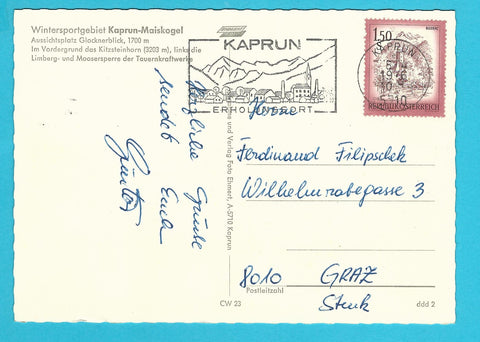 Wintersportgebiet Kaprun-Maiskogel
Aussichtsplatz Glocknerblick, 1700 m
Im Vordergrund das Kitzsteinhorn (3203 m), links die
Limberg- und Moosersperre der Tauernkraftwerke
KAPRUN
ERHOLUNGSORT
KAPRUN
1976
1.50
REPUBLIK ÖSTERREICH
Herzliche Grüße
sendet Euch
Günter
und Verlag Foto Ehmert, A-5710 Kaprun
Ferdinand Filipschek
Wilhelmrabegasse 3
8010 GRAZ
Postleitzahl
Stmk
CW 23
ddd 2